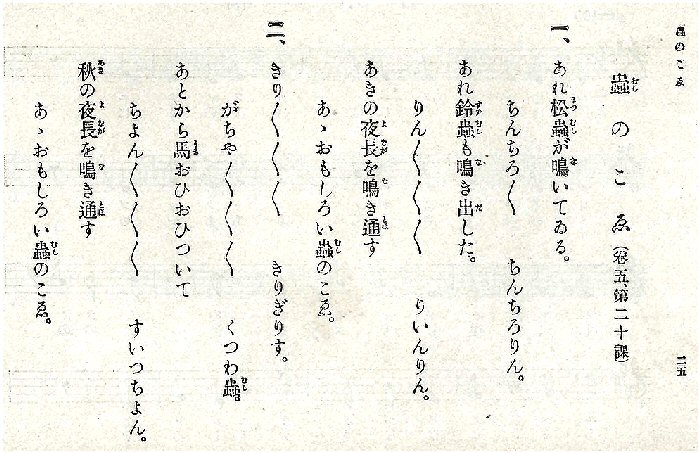 蟲のこゑ 二五
蟲のこゑ(卷五、第二十課)
一、あれ松蟲が鳴いてゐる。
ちんちろ〳〵 ちんちろりん。
あれ鈴蟲も鳴き出した。
りん〳〵〳〵〳〵 りいんりん。
あきの夜長を鳴き通す
あゝおもしろい蟲のこゑ。
二、きり〳〵〳〵〳〵 きりぎりす。
がちや〳〵〳〵〳〵 くつわ蟲。
あとから馬おひおひついて
ちよん〳〵〳〵〳〵 すいつちよん。
秋の夜長を鳴き通す
あゝおもしろい蟲のこゑ。